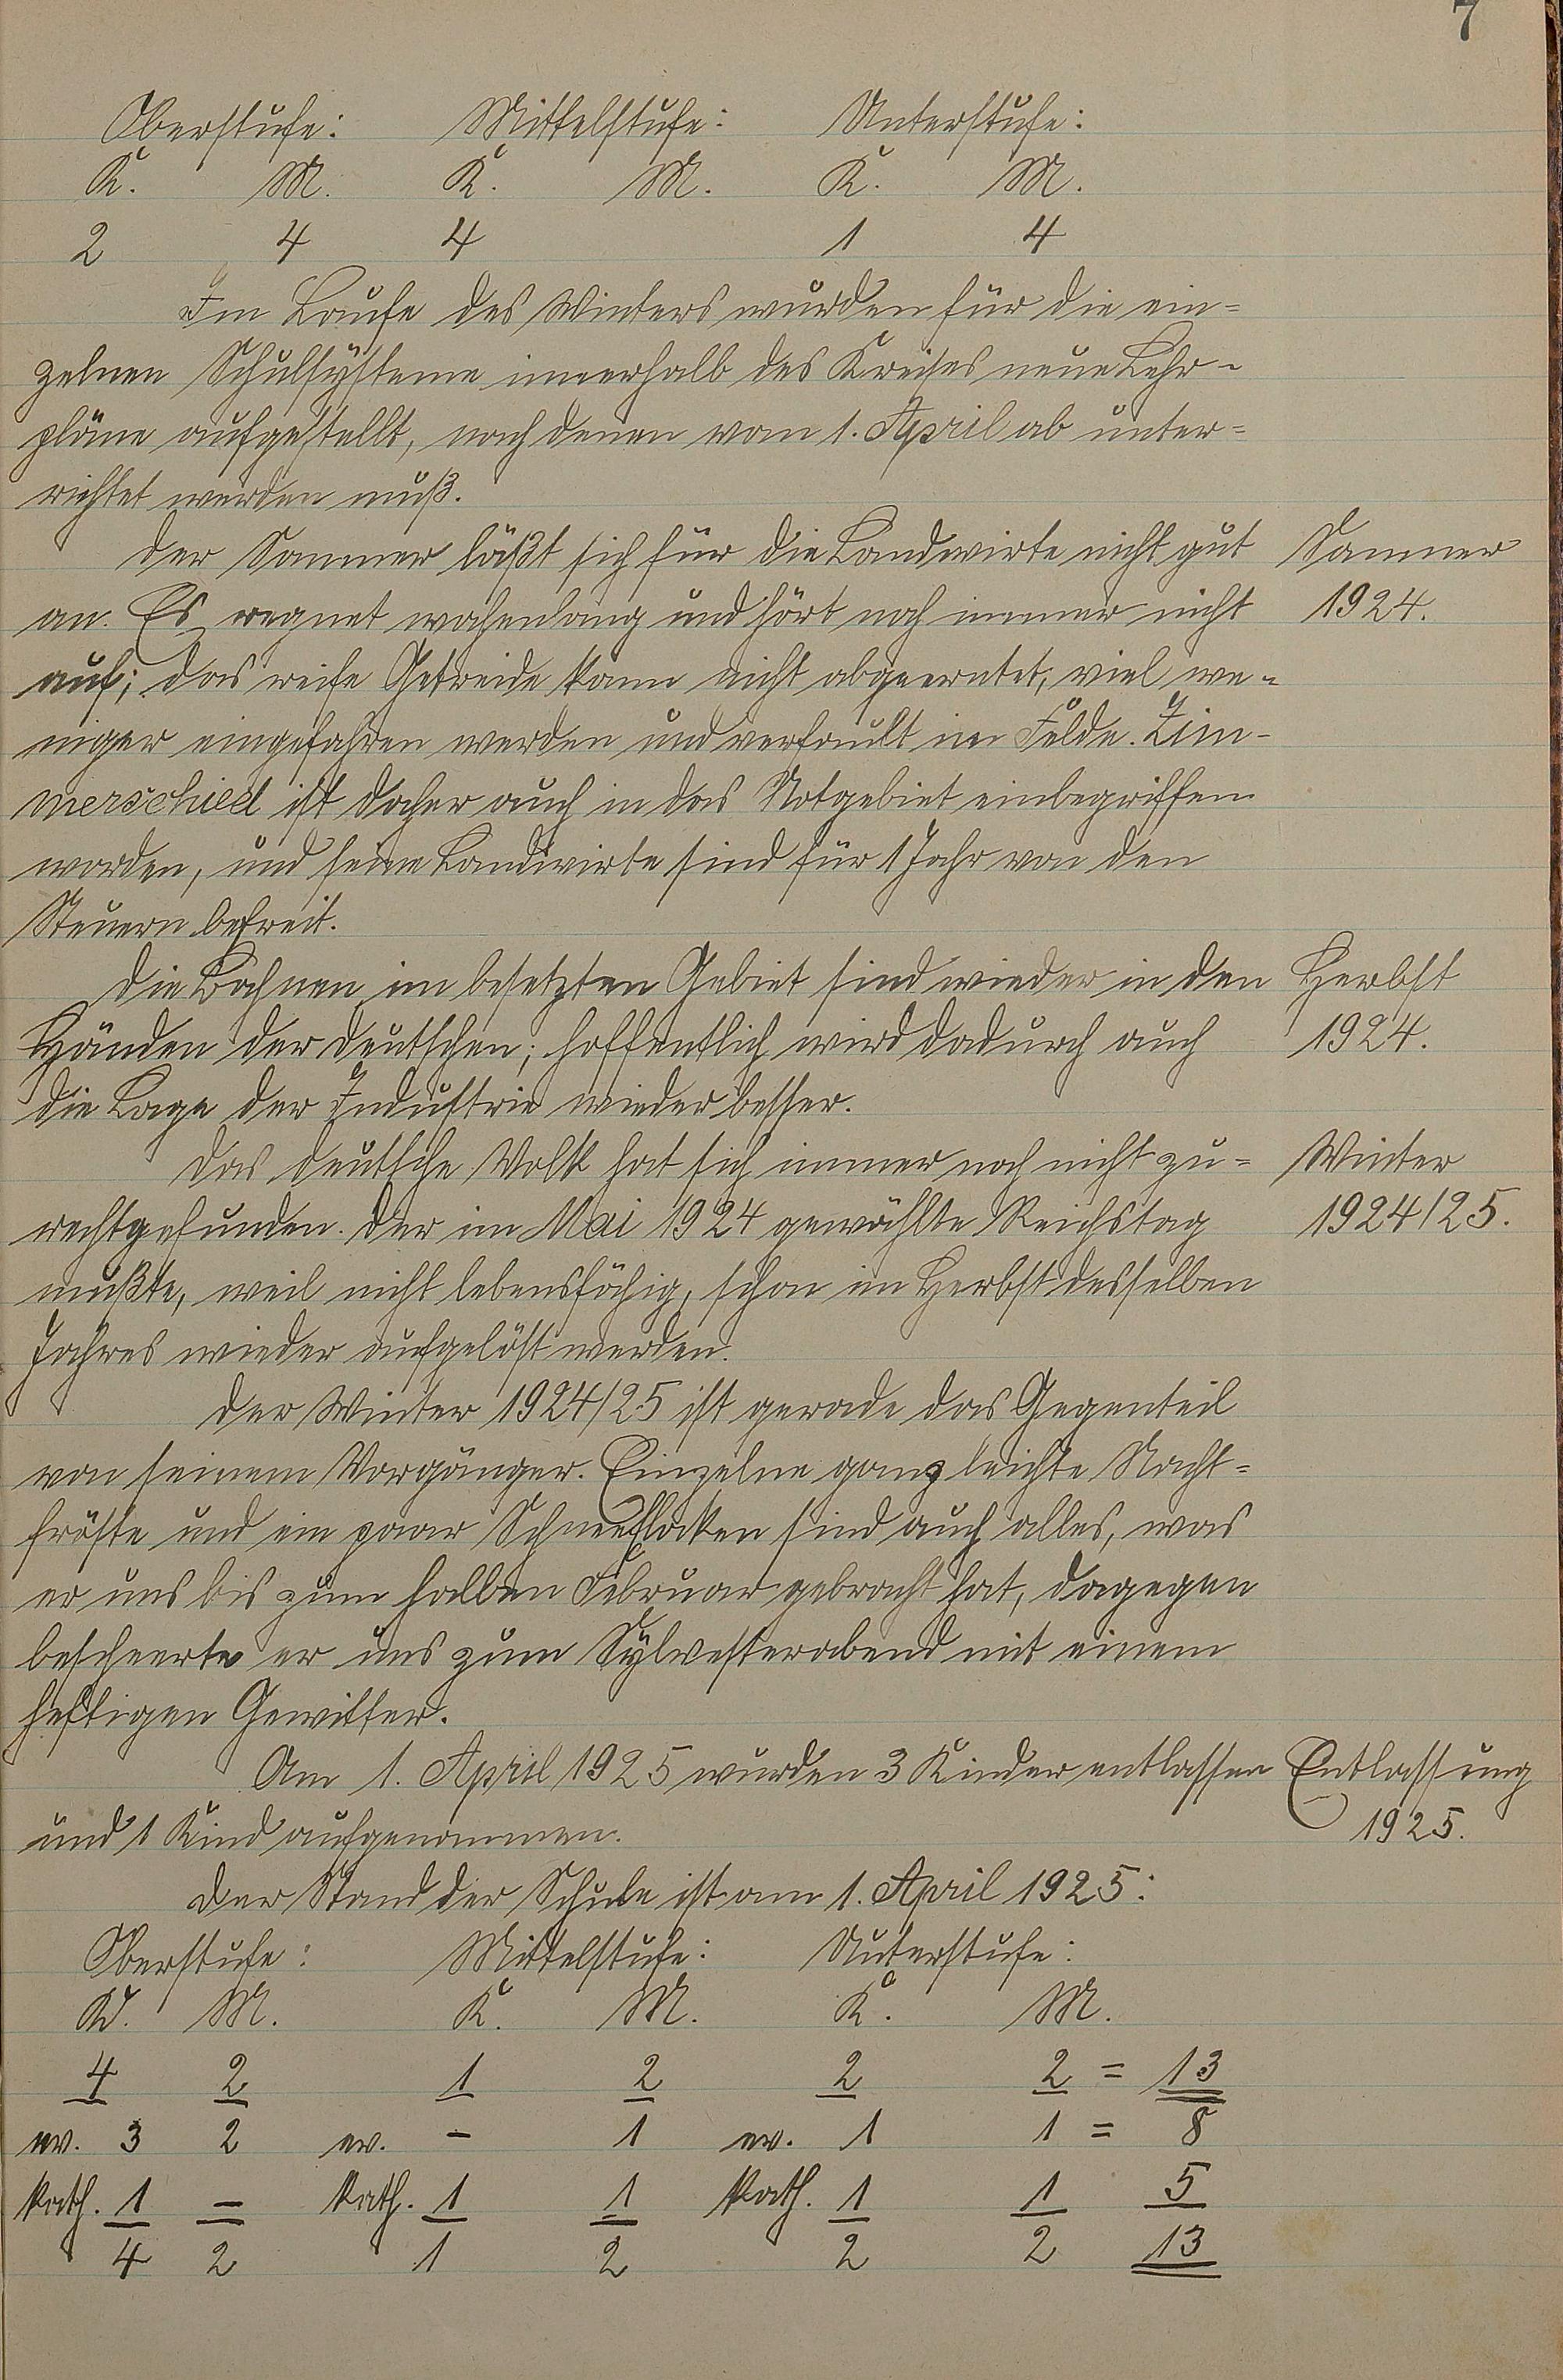 7
Oberstufe: Mittelstufe: Unterstufe:
K. M. K. M. K. M.
2 4 4 1 4
Im Laufe des Winters wurden für die ein=
zelnen Schulsysteme innerhalb des Kreises neue Lehr-
pläne aufgestellt, nach denen vom 1. April ab unter=
richtet werden muß.
Der Sommer läßt sich für die Landwirte nicht gut
Sommer
an. Es regnet wochenlang und hört noch immer nicht
1924.
auf; das reife Getreide kann nicht abgeerntet, viel we-
niger eingefahren werden und verfault im Felde. Zim-
merschied ist daher auch in das Notgebiet einbegriffen
worden, und seine Landwirte sind für 1 Jahr von den
Steuern befreit.
Die Bahnen im besetzten Gebiet sind wieder in den
Herbst
Händen der Deutschen; hoffentlich wird dadurch auch
1924.
die Lage der Industrie wieder besser.
Das deutsche Volk hat sich immer noch nicht zu=
Winter
rechtgefunden. Der im Mai 1924 gewählte Reichstag
1924/25.
mußte, weil nicht lebensfähig, schon im Herbst desselben
Jahres wieder aufgelöst werden.
Der Winter 1924/25 ist gerade das Gegenteil
von seinem Vorgänger. Einzelne ganz leichte Nacht=
fröste und ein paar Schneeflocken sind auch alles, was
er uns bis zum halben Februar gebracht hat, dagegen
bescheerte er uns zum Sylvesterabend mit einem
heftigen Gewitter.
Am 1. April 1925 wurden 3 Kinder entlassen
Entlassung
und 1 Kind aufgenommen.
1925.
Der Stand der Schule ist am 1. April 1925:
Oberstufe: Mittelstufe: Unterstufe:
K. M. K. M. K. M.
4 2 1 2 2 2 = 13
ev. 3 2 ev. - 1 ev. 1 1 = 8
kath. 1 - kath. 1 1 kath. 1 1 5
4 2 1 2 2 2 13